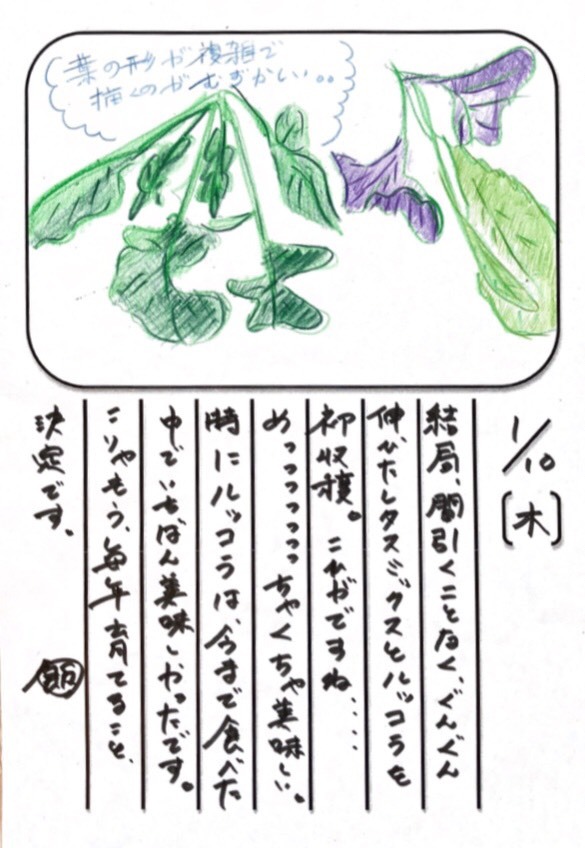 葉の形が複雑で
描くのがむずかしい。。
1/10
[木]
結局、間引くことなく、ぐんぐん
伸びたレタスミックスとルッコラを
初収穫。これがですね....
めっつつつつつっちゃくちゃ美味しい。
時にルッコラは、今まで食べた
中でいちばん美味しかったです。
こりゃもう、毎年育てること、
決定です。
飯